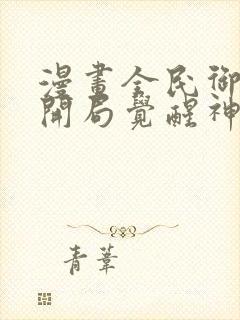 漫畫全民御
開局覺醒神
青葦